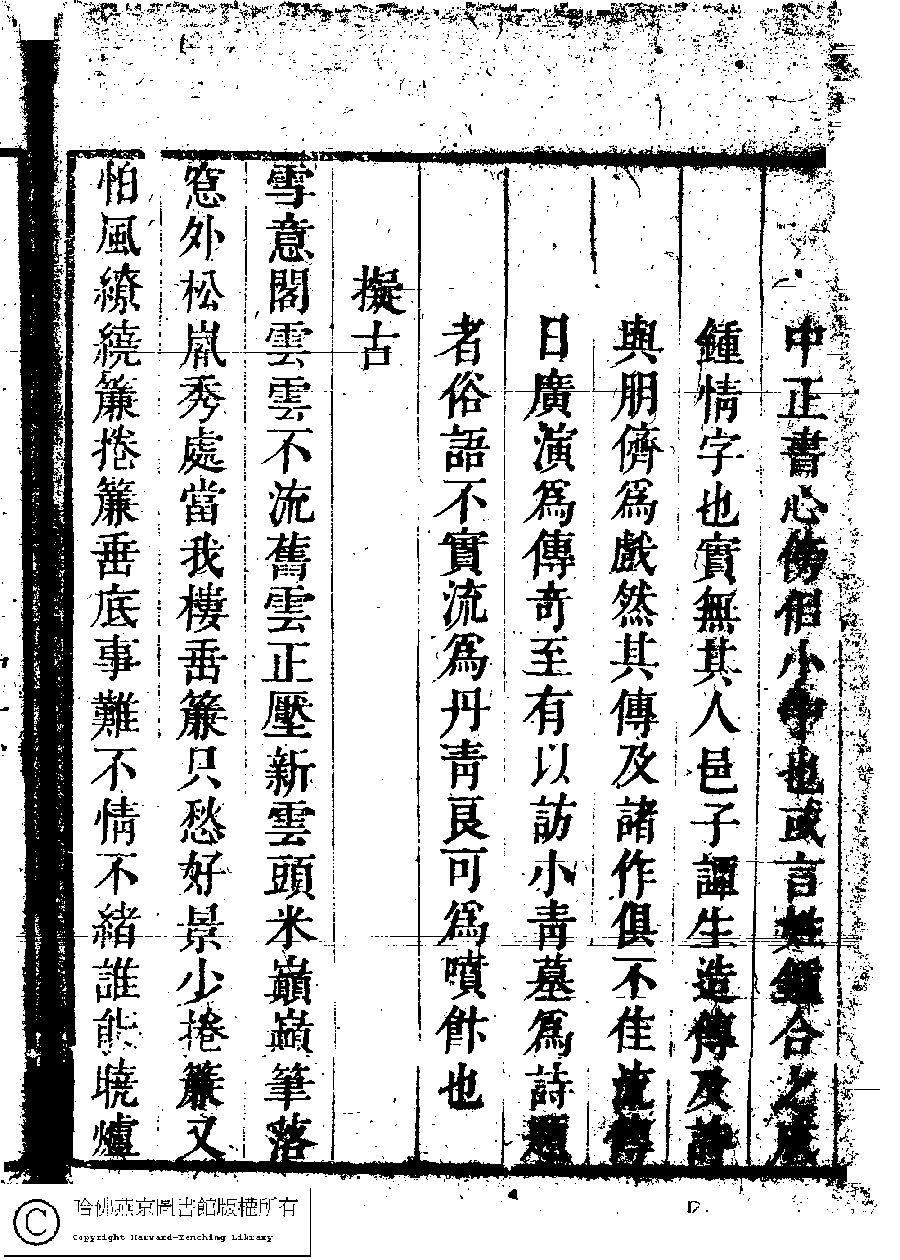 中正書心傍佀小字也或言姓鍾合之成
鍾情字也實無其人邑子譚生造傳及詩
與朋儕爲戲然其傳及諸作俱不佳流傳
日廣演爲傳奇至有以訪小青墓爲詩題
者俗語不實流爲丹青良可爲噴飰也
擬古
雪意閣雲雲不流舊雲正壓新雲頭米巓巓筆落
窓外松嵐秀處當我樓垂簾只愁好景少捲簾又
怕風繚繞簾捲簾垂底事難不情不緒誰能曉爐
哈佛燕京圖書館版權所有
Copyright Harvard-Yenching Library